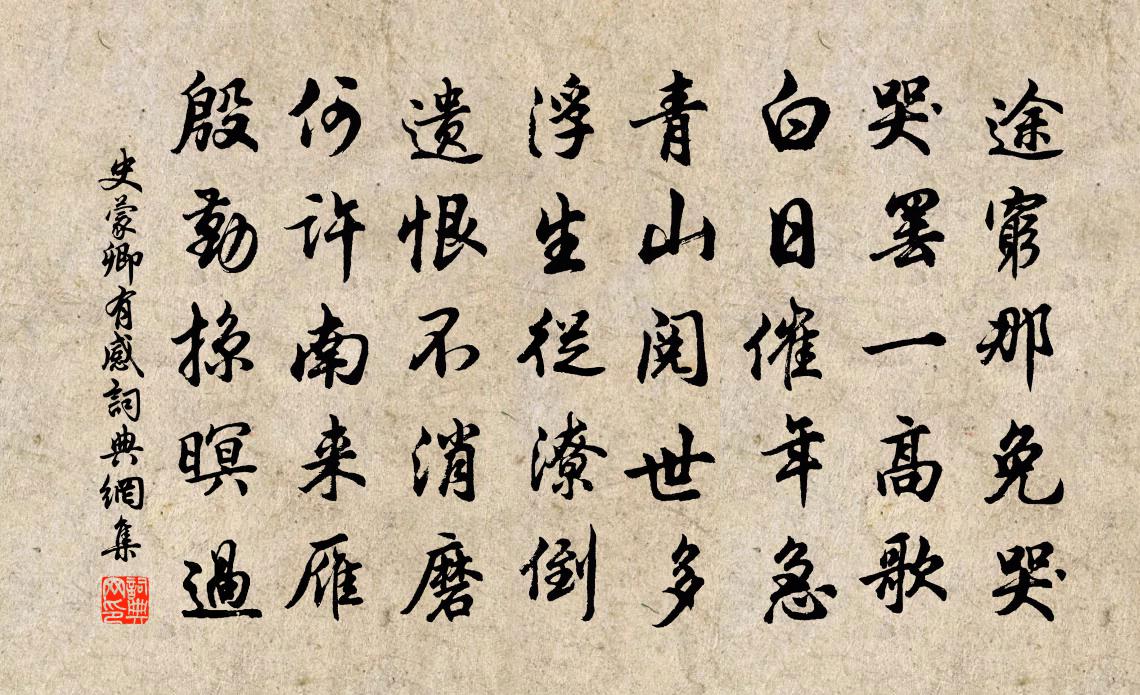 途窮那免哭
哭罷一高歌
白日催年急
青山閱世多
浮生從潦倒
遺恨不消磨
何許南来雁
殷勤掠暝過
史蒙卿有感詞典網集
詞典網印